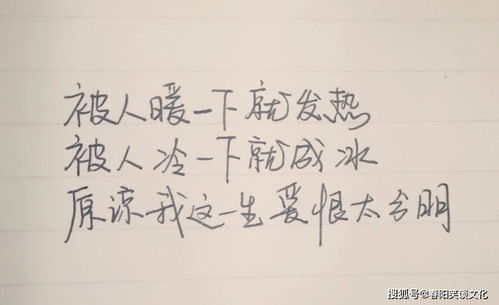 被人暖一下就发热
被人冷一下就成冰
原谅我这一生爱恨太分明
搜狐号@春阳笑谈文化